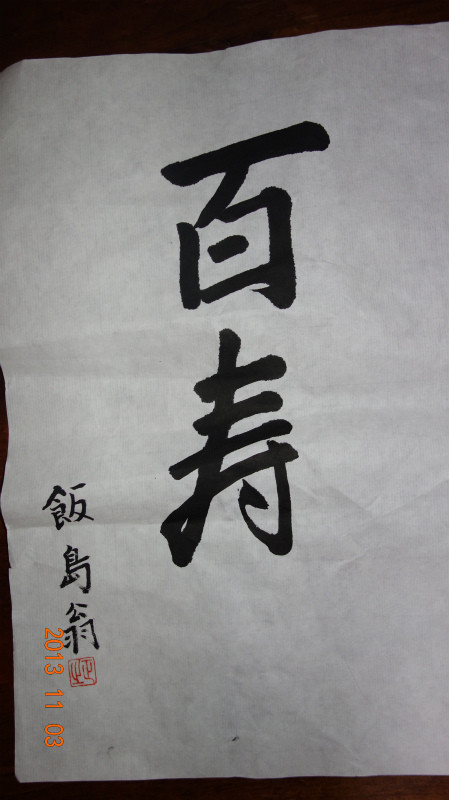 百寿
飯島翁
2013 11 03